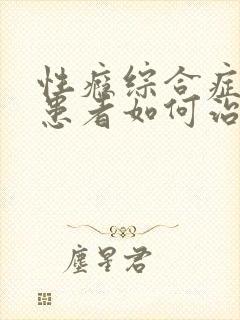 性瘾综合症
患者如何治
塵星君